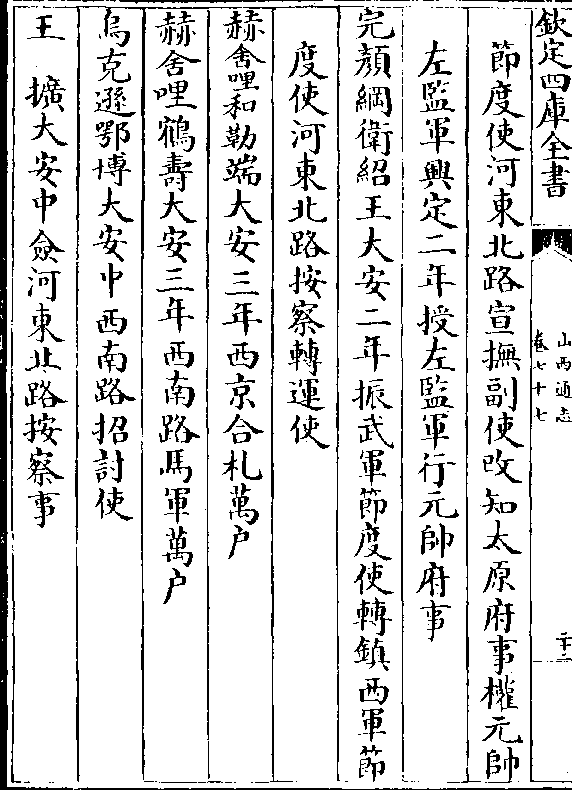 欽定四庫全書
山西通志
卷七十七
節度使河東北路宣撫副使改知太原府事權元帥
左監軍興定二年授左監軍行元帥府事
完顔綱衛紹王大安二年振武軍節度使轉鎮西軍節
度使河東北路按察轉運使
赫舍哩和勒端大安三年西京合札萬户
赫舍哩鶴壽大安三年西南路馬軍萬户
烏克遜鄂博大安中西南路招討使
王 擴大安中僉河東北路按察事